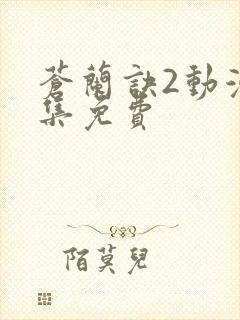 蒼蘭訣2動
集免費
陌莫兒